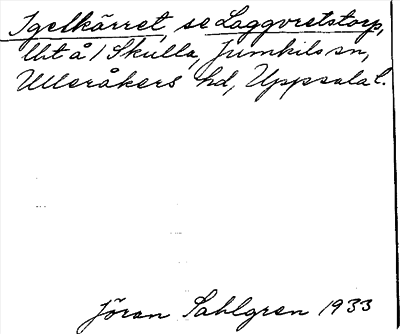 Igelkärret, se Laggvretstorp,
lht å 1 Skulla, Jumkils sn,
Ulleråkers hd, Uppsala l.
Jöran Sahlgren 1933